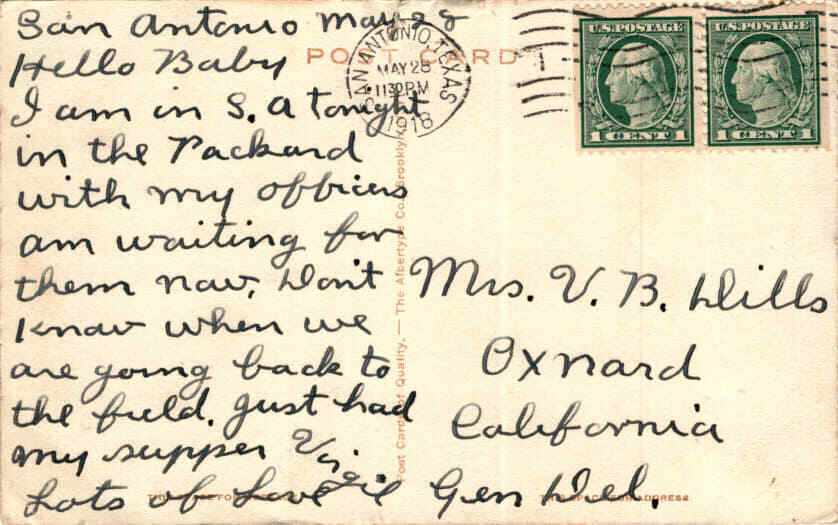 San Antonio May 28
Hello Baby
I am in S. A tonight
in the Packard
with my officers
am waiting for
them now, Don't
know when we
are going back to
the field. Just had
my supper Virgil
Lots of Love
POST CARD
SAN ANTONIO, TEXAS
MAY 28
1130 PM
1918
U.S. POSTAGE
1 CENT 1
U.S. POSTAGE
1 CENT 1
Post Cards of Quality. — The Albertype Co., Brooklyn
Mrs. V. B. Dills
Oxnard
California
Gen Del.
THIS SPACE FOR ADDRESS